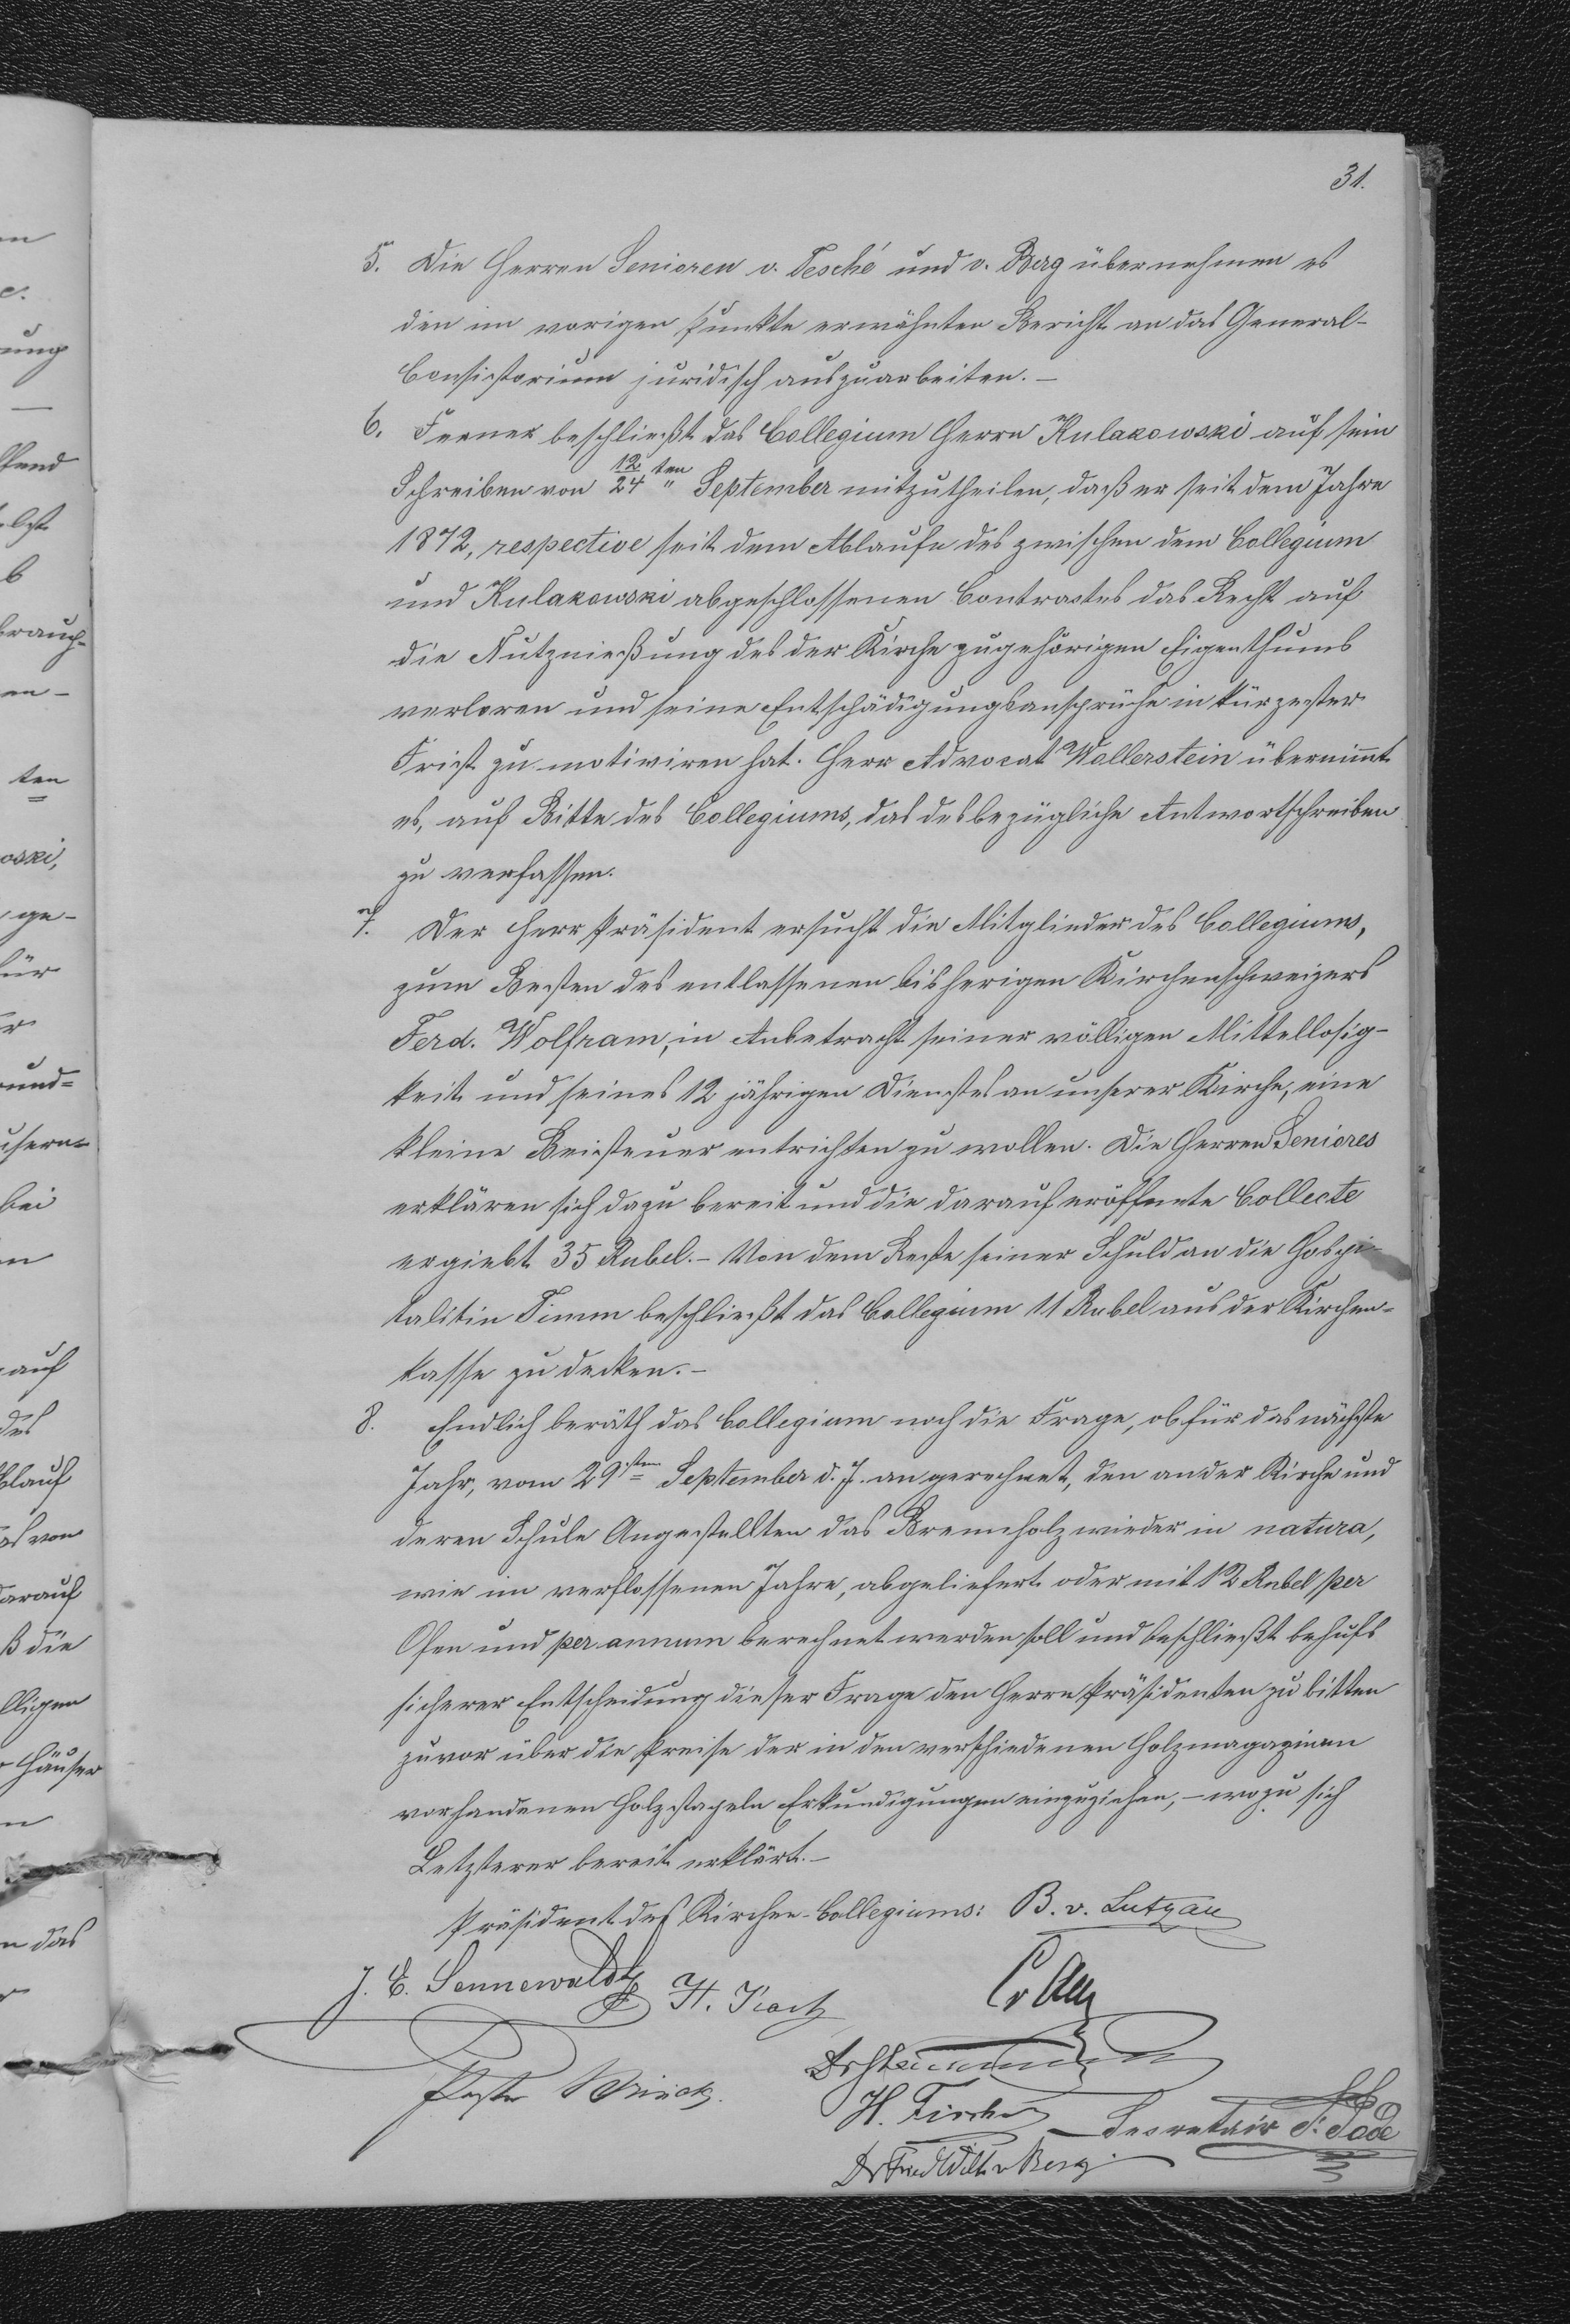 31.
5. Die Herren Senioren v. Tesché und v. Berg übernehmen es
den im vorigen Punkte erwähnten Bericht an das General-
Consistorium juridisch auszuarbeiten. –
6. Ferner beschließt das Collegium Herrn Kulakowski auf sein
Schreiben von 12/24 ten September mitzutheilen, daß er seit dem Jahre
1872, respective seit dem Ablaufe des zwischen dem Collegium
und Kulakowski abgeschlossenen Contractes das Recht auf
die Nutznießung des der Kirche zugehörigen Eigenthums
verloren und seine Entschädigungsansprüche in kürzester
Frist zu motiviren hat. Herr Advocat Wallerstein übernimmt
es, auf Bitte des Collegiums, das desbezügliche Antwortschreiben
zu verfassen.
7. Der Herr Präsident ersucht die Mitglieder des Collegiums,
zum Besten des entlassenen bisherigen Kirchenschweizers
Ferd. Wolfram, in Anbetracht seiner völligen Mittellosig-
keit und seines 12 jährigen Dienstes an unserer Kirche, eine
kleine Beisteuer entrichten zu wollen. Die Herren Seniores
erklären sich dazu bereit und die darauf eröffnete Collecte
ergiebt 35 Rubel. – Von dem Reste seiner Schuld an die Hospi-
talitin Timm beschließt das Collegium 11 Rubel aus der Kirchen-
kasse zu decken. –
8. Endlich beräth das Collegium noch die Frage, ob für das nächste
Jahr, vom 29sten September d. J. an gerechnet, den an der Kirche und
deren Schule Angestellten das Brennholz wieder in natura,
wie im verflossenen Jahre, abgeliefert oder mit 12 Rubel per
Ofen und per annum berechnet werden soll und beschließt behufs
sicherer Entscheidung dieser Frage den Herrn Präsidenten zu bitten
zuvor über die Preise der in den verschiedenen Holzmagazinen
vorhandenen Holzstapeln Erkundigungen einzuziehen, – wozu sich
Letzterer bereit erklärt. –
Präsident des Kirchen-Collegiums: B. v. Lutzau
J. E. Sennewaldt
Pastor
H.
Secretair
Dr Fried Wilh v Berg